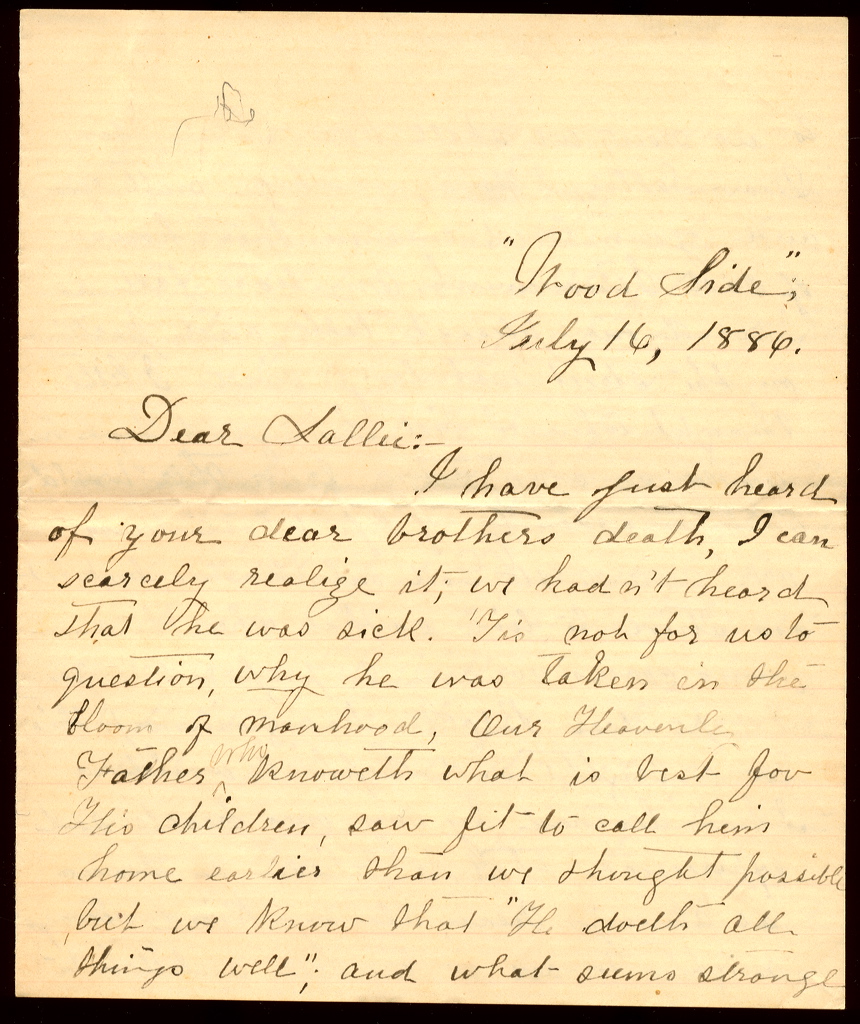 "Wood Side",
July 16, 1886.
Dear Sallie:-
I have just heard
of your dear brothers death, I can
scarcely realize it; we had n't heard
that he was sick. 'Tis not for us to
question, why he was taken in the
bloom of manhood, Our Heavenly
Father who knoweth what is best for
His children, saw fit to call him
home earlier than we thought possible
but we know that "He doeth all
things well"; and what seems strange